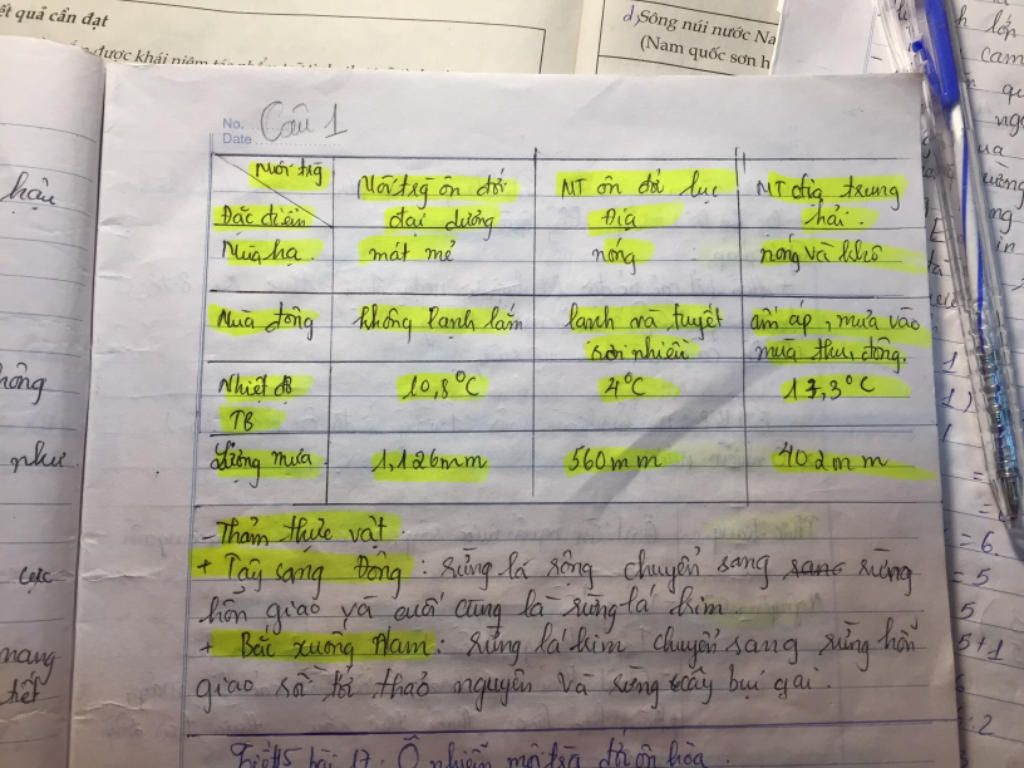 ết quả cần đạt
được khái niệm
d) Sông núi nước Na
(Nam quốc sơn h
No. Câu 1
Date
Môi trg
Đặc điểm
Môi trg ôn đới
đại dương
MT ôn đới lục
Địa
MT địa trung
hải.
Mùa hạ.
mát mẻ
nóng
nóng và khô
Mùa đông
không lạnh lắm
lạnh và tuyết
rơi nhiều
ấm áp, mưa vào
mùa thu, đông.
Nhiệt độ
TB
10,8°C
4°C
17,3°C
Lượng mưa
1,126mm
560mm
402mm
- Thảm thực vật.
+ Tây sang Đông: rừng lá rộng chuyển sang sang rừng
hỗn giao và cuối cùng là rừng lá kim
+ Bắc xuống Nam: rừng lá kim chuyển sang rừng hỗn
giao rồi tới thảo nguyên và rừng cây bụi gai.
Tiết 15 bài 17: Ô nhiễm môi trg đới ôn hòa.
hậu
hông
như
cực
mang
hết
lớn
cam
1
1)
= 6.
= 5
5
5+1
2